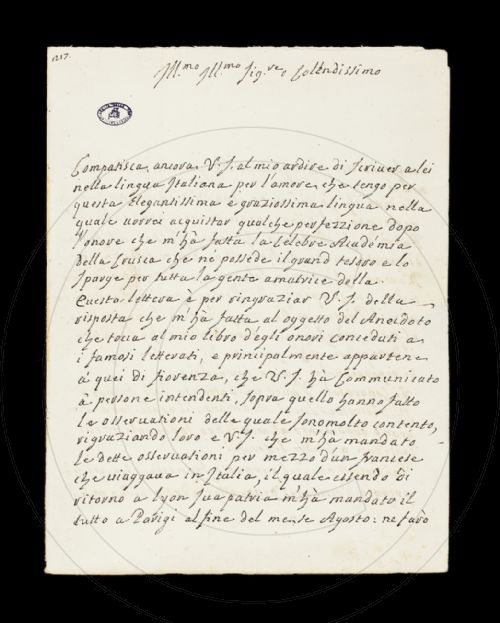 1217.
Ill.mo Ill.mo Sig.re e Colendissimo
Compatisca ancora V. S. al mio ardire di scriver a lei
nella lingua Italiana per l'amore che tengo per
questa Elegantissima e graziossima lingua nella
quale vorrei acquistar qualche perfezzione dopo
l'onore che m'hà fatta la Celebre Académia
della Crusca che ne possède il grand tesoro e lo
sparge per tutta la gente amatrice della.
Questa lettera è per ringraziar V. S. della
risposta che m'hà fatta al oggetto del Anecdoto
che toca al mio libro dégli onori conceduti a
i famosi letterati, e principalmente appartene
à quei di Fiorenza, che V. S. hà Communicato
à persone intendenti, sopra quello hanno fatto
le osservationi delle quale sono molto contento,
rigraziando loro e V. S. che m'hà mandato
le dette osservationi per mezzo d'un francese
che viaggava in Italia, il quale essendo di
ritorno a Lyon sua patria m'hà mandato il
tutto a Parigi al fine del mese Agosto: ne farò